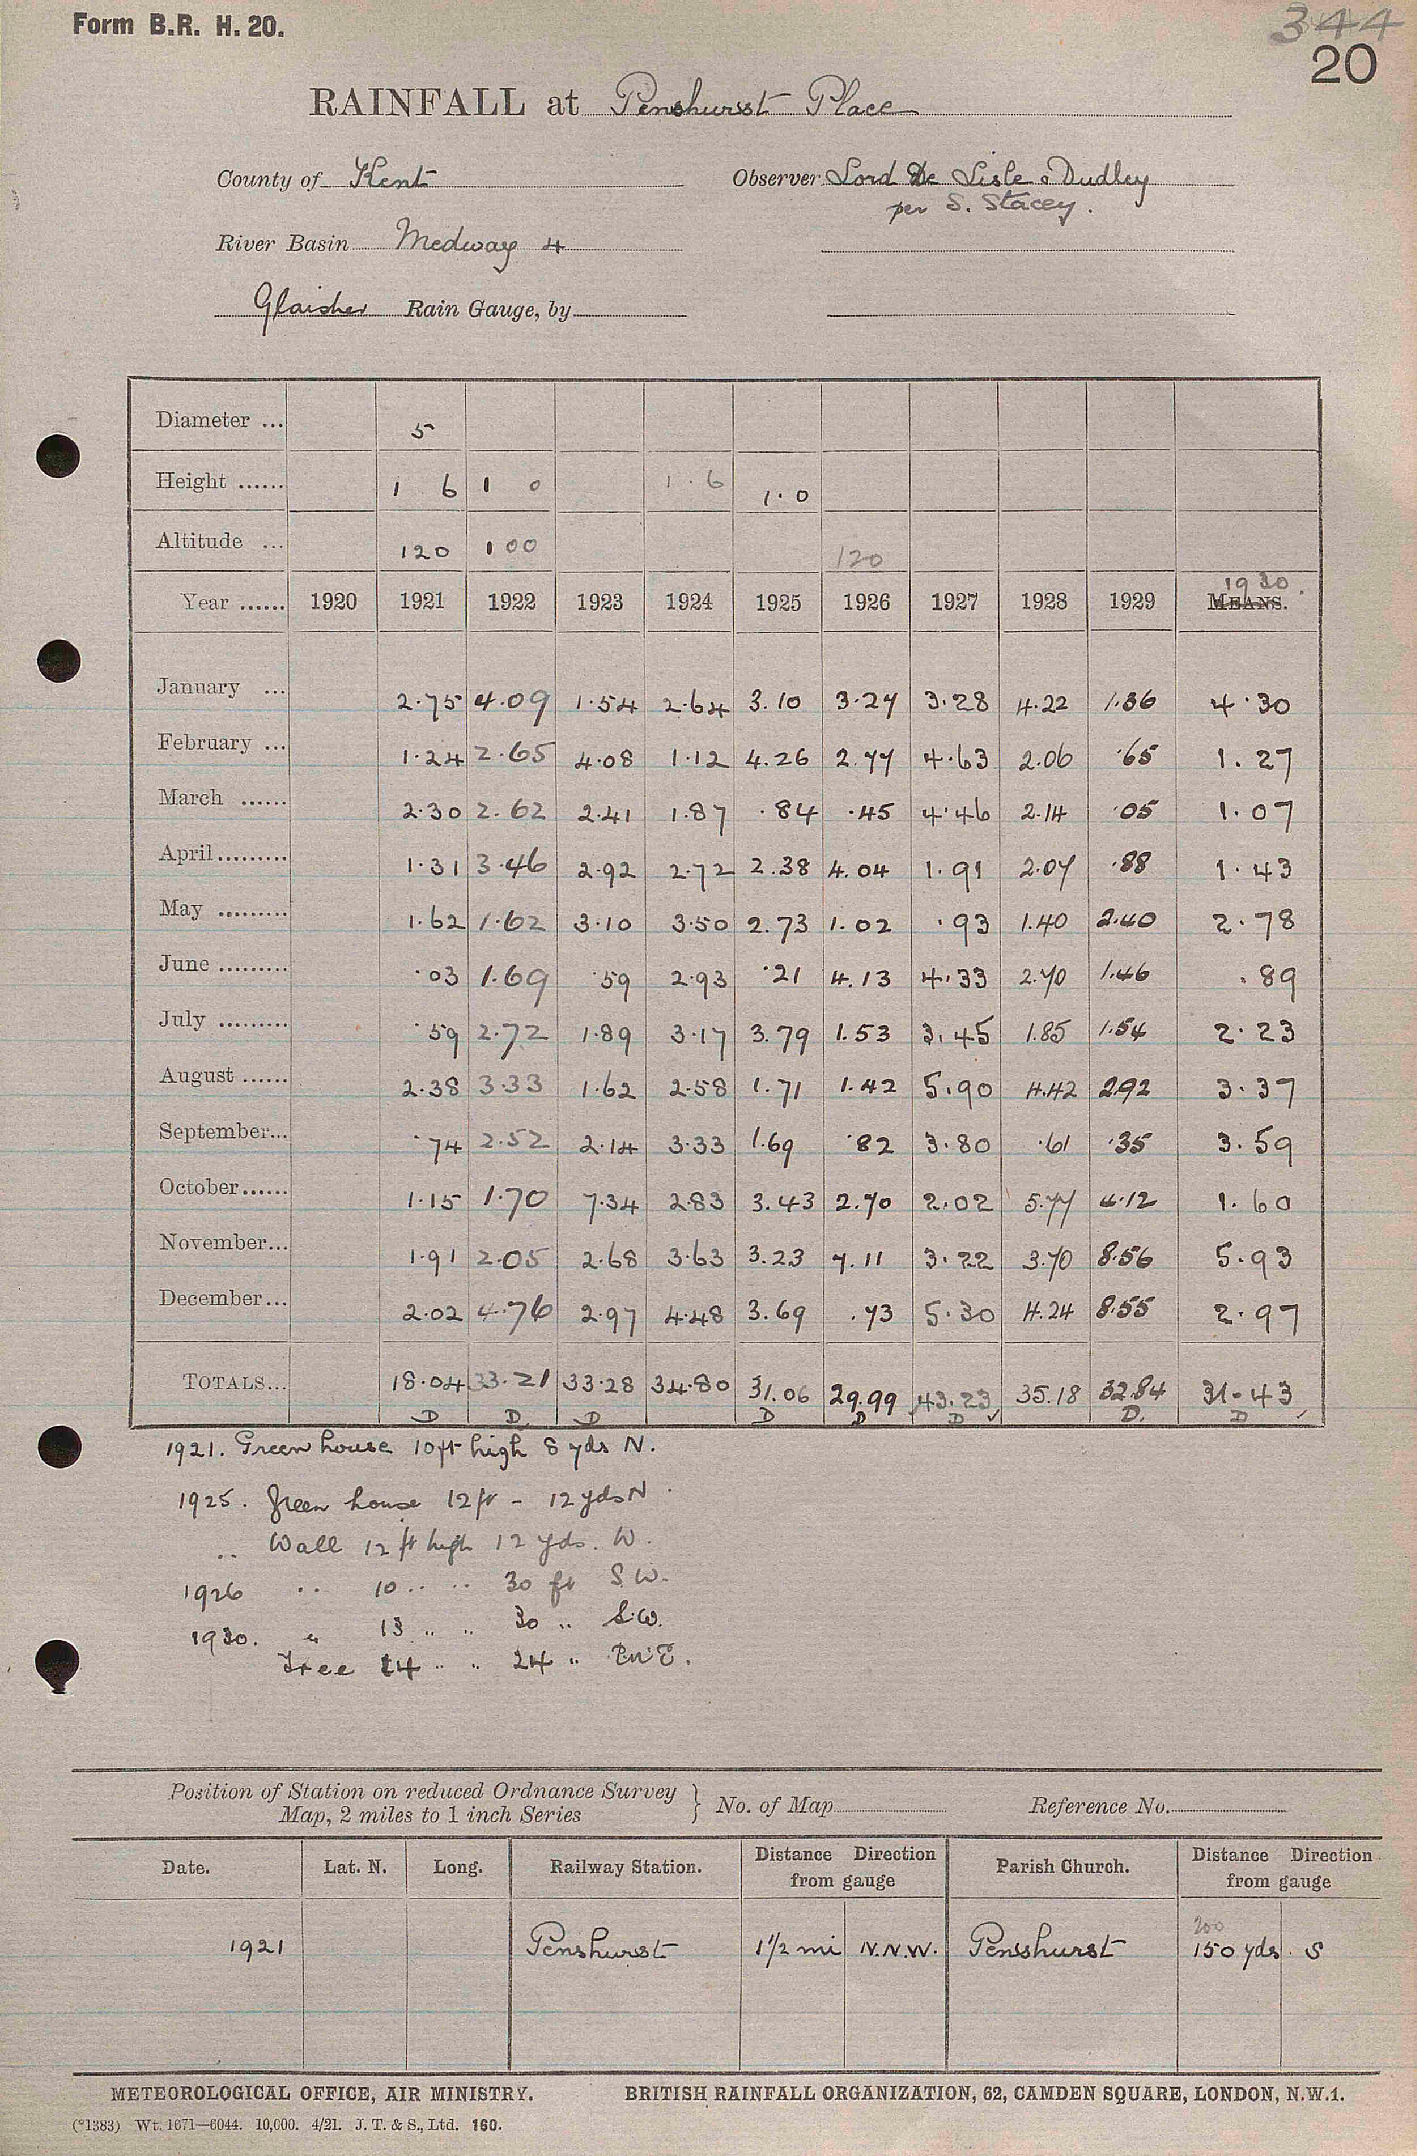 Form B.R. H. 20.
344
20
RAINFALL at Penshurst Place
County of Kent
Observer Lord De Lisle & Dudley
per S. Stacey.
River Basin Medway 4
Glaisher Rain Gauge, by
Diameter ... 5
Height ...... 1 6 1 0 1.6 1.0
Altitude ... 120 100 120
Year ...... 1920 1921 1922 1923 1924 1925 1926 1927 1928 1929 MEANS. 1930
January ... 2.75 4.09 1.54 2.64 3.10 3.27 3.28 4.22 1.36 4.30
February ... 1.24 2.65 4.08 1.12 4.26 2.77 4.63 2.06 .65 1.27
March ...... 2.30 2.62 2.41 1.87 .84 .45 4.46 2.14 .05 1.07
April......... 1.31 3.46 2.92 2.72 2.38 4.04 1.91 2.07 .88 1.43
May ......... 1.62 1.62 3.10 3.50 2.73 1.02 .93 1.40 2.40 2.78
June ......... .03 1.69 .59 2.93 .21 4.13 4.33 2.70 1.46 .89
July ......... .59 2.72 1.89 3.17 3.79 1.53 3.45 1.85 1.54 2.23
August ...... 2.38 3.33 1.62 2.58 1.71 1.42 5.90 4.42 2.92 3.37
September... .74 2.52 2.14 3.33 1.69 .82 3.80 .61 .35 3.59
October...... 1.15 1.70 7.34 2.83 3.43 2.70 2.02 5.77 4.12 1.60
November... 1.91 2.05 2.68 3.63 3.23 7.11 3.22 3.70 8.56 5.93
December... 2.02 4.76 2.97 4.48 3.69 .73 5.30 4.24 8.55 2.97
TOTALS... 18.04 33.21 33.28 34.80 31.06 29.99 43.23 35.18 32.84 31.43
D D D D D D ✓ D. D ✓
1921. Green house 10ft high 8 yds N.
1925. Green house 12 ft - 12 yds N.
" Wall 12 ft high 12 yds. W.
1926 " 10 " " 30 ft S.W.
1930. " 13 " " 30 " S.W.
Tree 14 " " 24 "
Position of Station on reduced Ordnance Survey
Map, 2 miles to 1 inch Series } No. of Map Reference No.
Date. Lat. N. Long. Railway Station. Distance Direction from gauge Parish Church. Distance Direction from gauge
200
1921 Penshurst 1 1/2 mi N.N.W. Penshurst 150 yds. S
METEOROLOGICAL OFFICE, AIR MINISTRY. BRITISH RAINFALL ORGANIZATION, 62, CAMDEN SQUARE, LONDON, N.W.1.
(°1383) Wt. 1671—6044. 10,000. 4/21. J. T. & S., Ltd. 160.